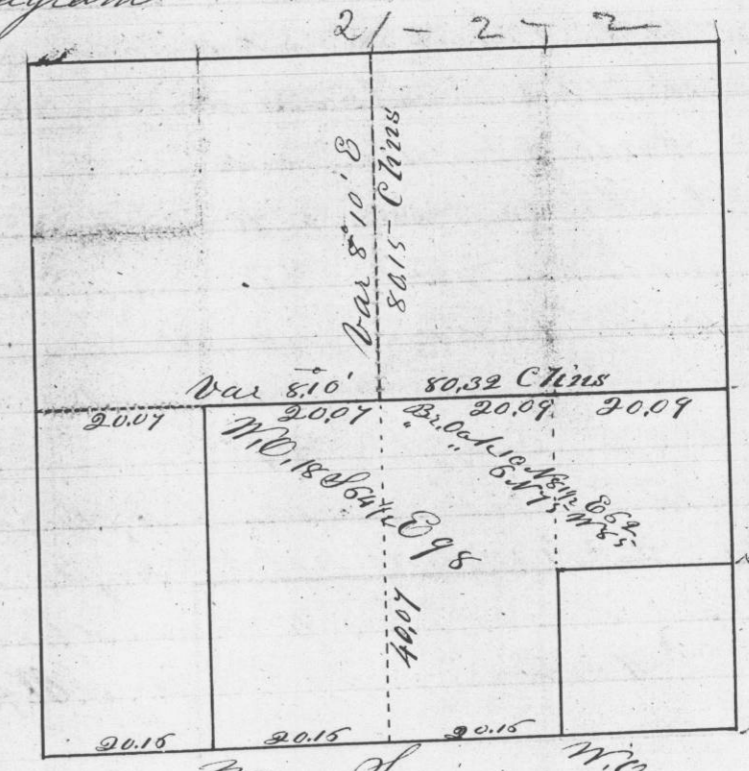 21 - 2 - 2
Var 8°10' E
80.15 Chns
Var 8°10' 80,32 Chns
20.07 20.07 20.09 20.09
W.O. 18 S 64 1/2 E 98
Br. Oak 10 N 81 1/2 E 62
" " 6 N 75 W 85
40.07
20.16 20.16 20.16